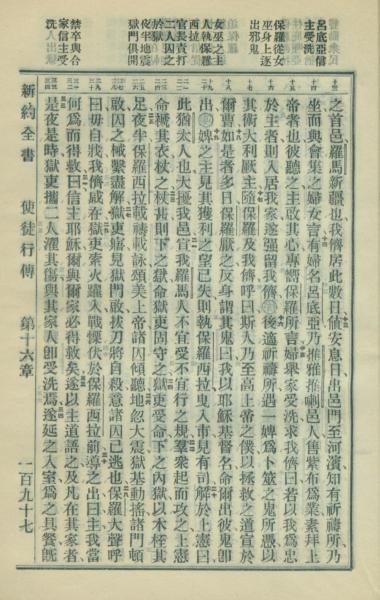 呂底亞信
主受洗
保羅從女
巫身上逐
出邪鬼
女巫之主
人執保羅
官長責打
二人囚之
於獄
夜半地震
獄門俱開
禁卒與合
家信主受
之首邑羅馬新疆也我儕居此數日值安息日出邑門至河濱知有祈禱所乃
坐而與會集之婦女言有婦名呂底亞乃推雅推喇邑人售紫布為業素拜上
帝者也彼聽之主啟其心專嚮保羅所言婦舉家受洗求我儕曰若以我為忠
於主者則入居我家遂強留我儕後適祈禱所遇一婢為卜筮之鬼所憑以
其術大利厥主隨保羅及我儕呼曰斯人乃至高上帝之僕以拯救之道宣於
爾曹如是者多日保羅厭之反身謂其鬼曰我以耶穌基督名命爾出彼鬼卽
出婢之主見其獲利之望已失則執保羅西拉曳入市見有司解於上憲曰
此猶太人也大擾我邑宣我羅馬人不宜受不宜行之規羣衆起而攻之上憲
命褫其衣杖之杖甚則下之獄命獄吏固守之獄吏受命下之內獄以木桎其
足夜半保羅西拉載禱載詠頌美上帝諸囚傾聽地忽大震獄基動搖諸門頓
啟囚之械繫盡解獄吏寤見獄門啟拔刀將自殺意諸囚已逃也保羅大聲呼
曰毋自戕我儕咸在獄吏索火躍入戰慄伏於保羅西拉前導之出曰主我當
何為而得救曰信主耶穌爾與爾家必得救矣遂以主道語之及凡在其家者
是夜是時獄吏攜二人濯其傷與其家人卽受洗焉遂延之入室為之具餐旣
新約全書 使徒行傳 第十六章 一百九十七